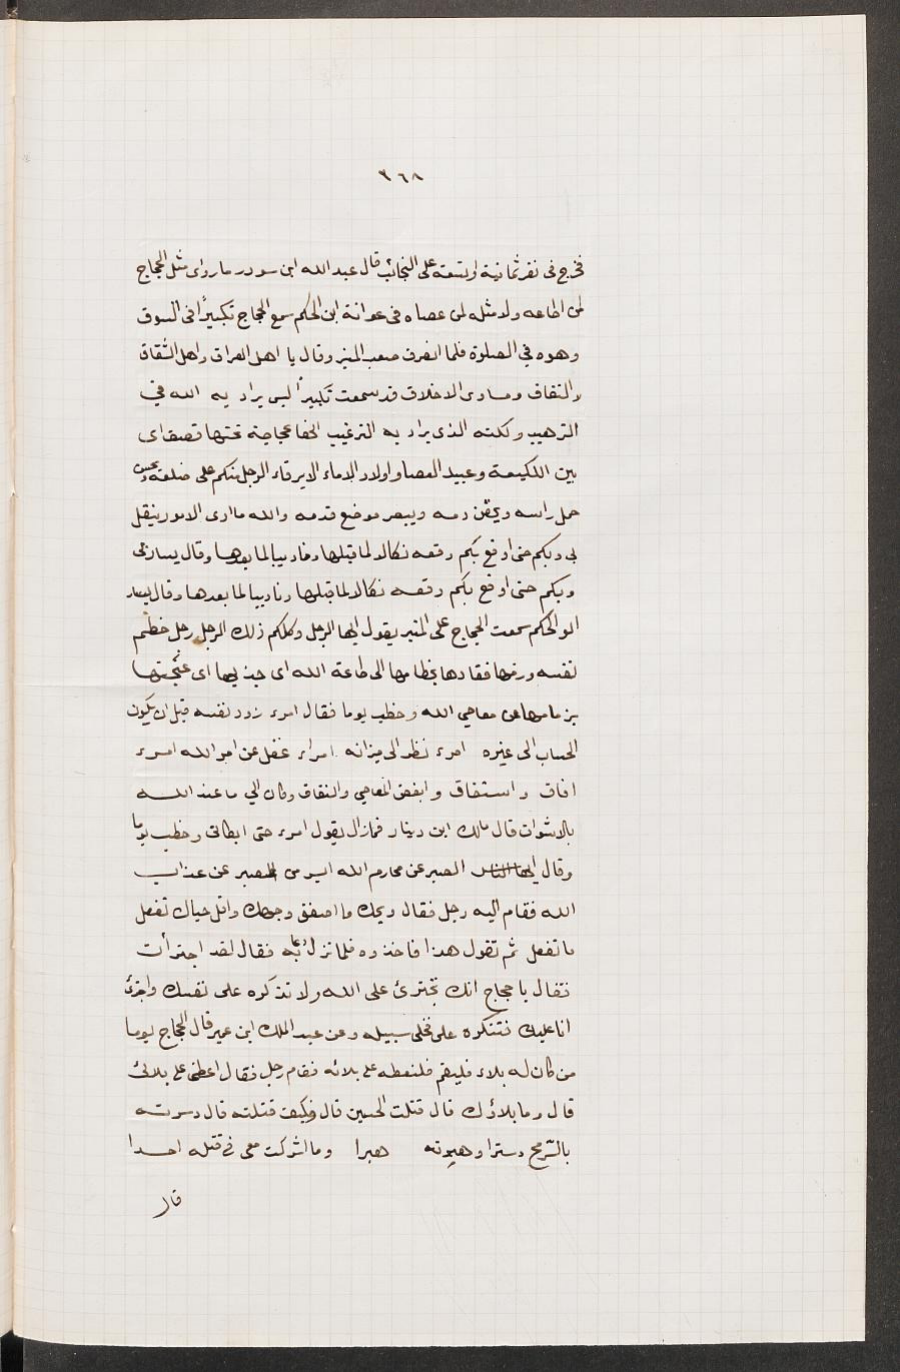 ٣٦٨
فخرج فى نفر ثمانية او تسعة على النجائب قال عبد الله ابن سودر مارواى مثل الحجاج
لمن اطاعه ولا مثله لمن عصاه فى عوانة ابن الحكم سمع الحجاج تكبيرًا فى السوق
وهوه في الصلوة فلما انصرف صعب المنبر وقال يا اهل العراق واهل الشقاق
والنفاق ومساوى الاخلاق قد سمعت تكبيرًا ليس يراد به الله في
الترهيب ولكنه الذى يراد به الترغيب انها عجاجة تحتها قصف اى
بين اللكيعة وعبيد العصا واولاد الاماء الا يرقاء الرجل منكم على ضلعه ويحسن
حمل راسه ويحقن دمه ويبصر موضع قدمه والله ما ارى الامور ينقل
بى وبكم حتى اوقع بكم وقعه نكالا لما قبلها وتاديبا لما بعدها وقال يسار
وبكم حتى اوقع بكم وقعه نكالا لما قبلها وتاديبا لما بعدها وقال
ابو الحكم سمعت الحجاج على المنبر يقول ايها الرجل وكلكم ذلك الرجل رجل خطم
نفسه وزمها فقادها بخطامها الى طاعة الله اى جذبها اى عنجتها
بزمامها عن معاصي الله وخطب يوما فقال امرء زود نفسه قبل ان يكون
الحساب الى غيره امرء نظر الى ميزانه امراء غفل عن امر الله امرء
افاق واستفاق وابغض المعاصي والنفاق وكان الي ما عند الله
بالاشوات قال ملك ابن دينار فمازال يقول امرء حتى ابطانى وخطب يوما
وقال ايها الناس الصبر عن محارم الله ايسر من الصبر عن عذاب
الله فقام اليه رجل فقال ويحك ما اصفق وجهك واقل حياك تفعل
ما تفعل ثم تقول هذا فاخذوه فلما نزل دعا به فقال لقد اجترأت
فقال يا حجاج انك تجترئ على الله ولا تذكره على نفسك واجترئ
انا عليك فتنكره على فخلى سبيله وعن عبد الملك ابن عمير قال الحجاج يوما
من كان له بلاء فليقم فلنعطه على بلائه فقام رجل فقال اعطنى على بلائى
قال وما بلاؤك قال قتلت الحسين قال وكيف قتلته قال دسرته
بالترمح دسترا وهبرته هبرا وما اشركت معى فى قتله احدا
قال